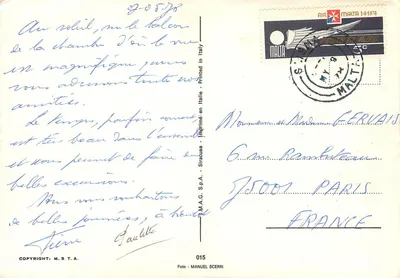 27-05-78
Au soleil, sur le balcon
de la chambre d'où la vue
est magnifique, nous
vous adressons toutes nos
amitiés.
Le temps, parfois couvert,
est très beau dans l'ensemble
et nous permet de faire de
belles excursions.
Nous vous souhaitons
de belles journées, à bientôt
Pierre
Paulette
COPYRIGHT: M. S. T. A.
S.M.A.G. S.p.A. - Siracusa - Imprimé en Italie - Printed in Italy
015
Foto - MANUEL SCERRI
AIR MALTA
MALTA
MALTA
Monsieur et Madame GERVAIS
6 rue Rambuteau
75001 PARIS
FRANCE